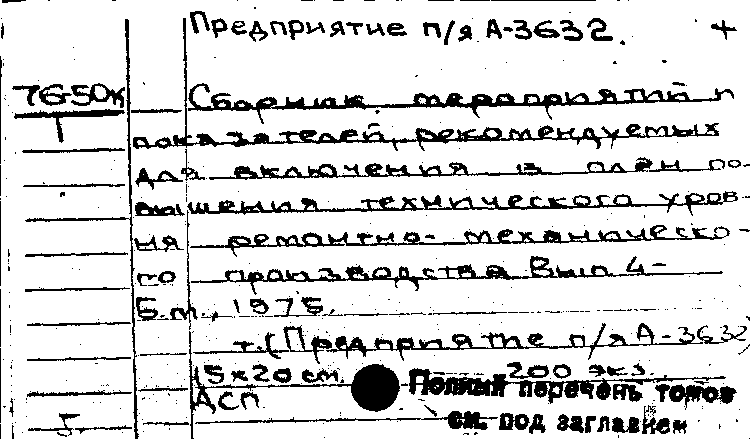 Предприятие п/я А-3632. +
76-50к Сборник мероприятий и
показателей, рекомендуемых
для включения в план по-
вышения технического уров-
ня ремонтно-механическо-
го производства Вып 4-
Б.м., 1975.
т. (Предприятие п/я А-3632)
15х20 см. 200 экз.
ДСП Полный перечень томов
см. под заглавием